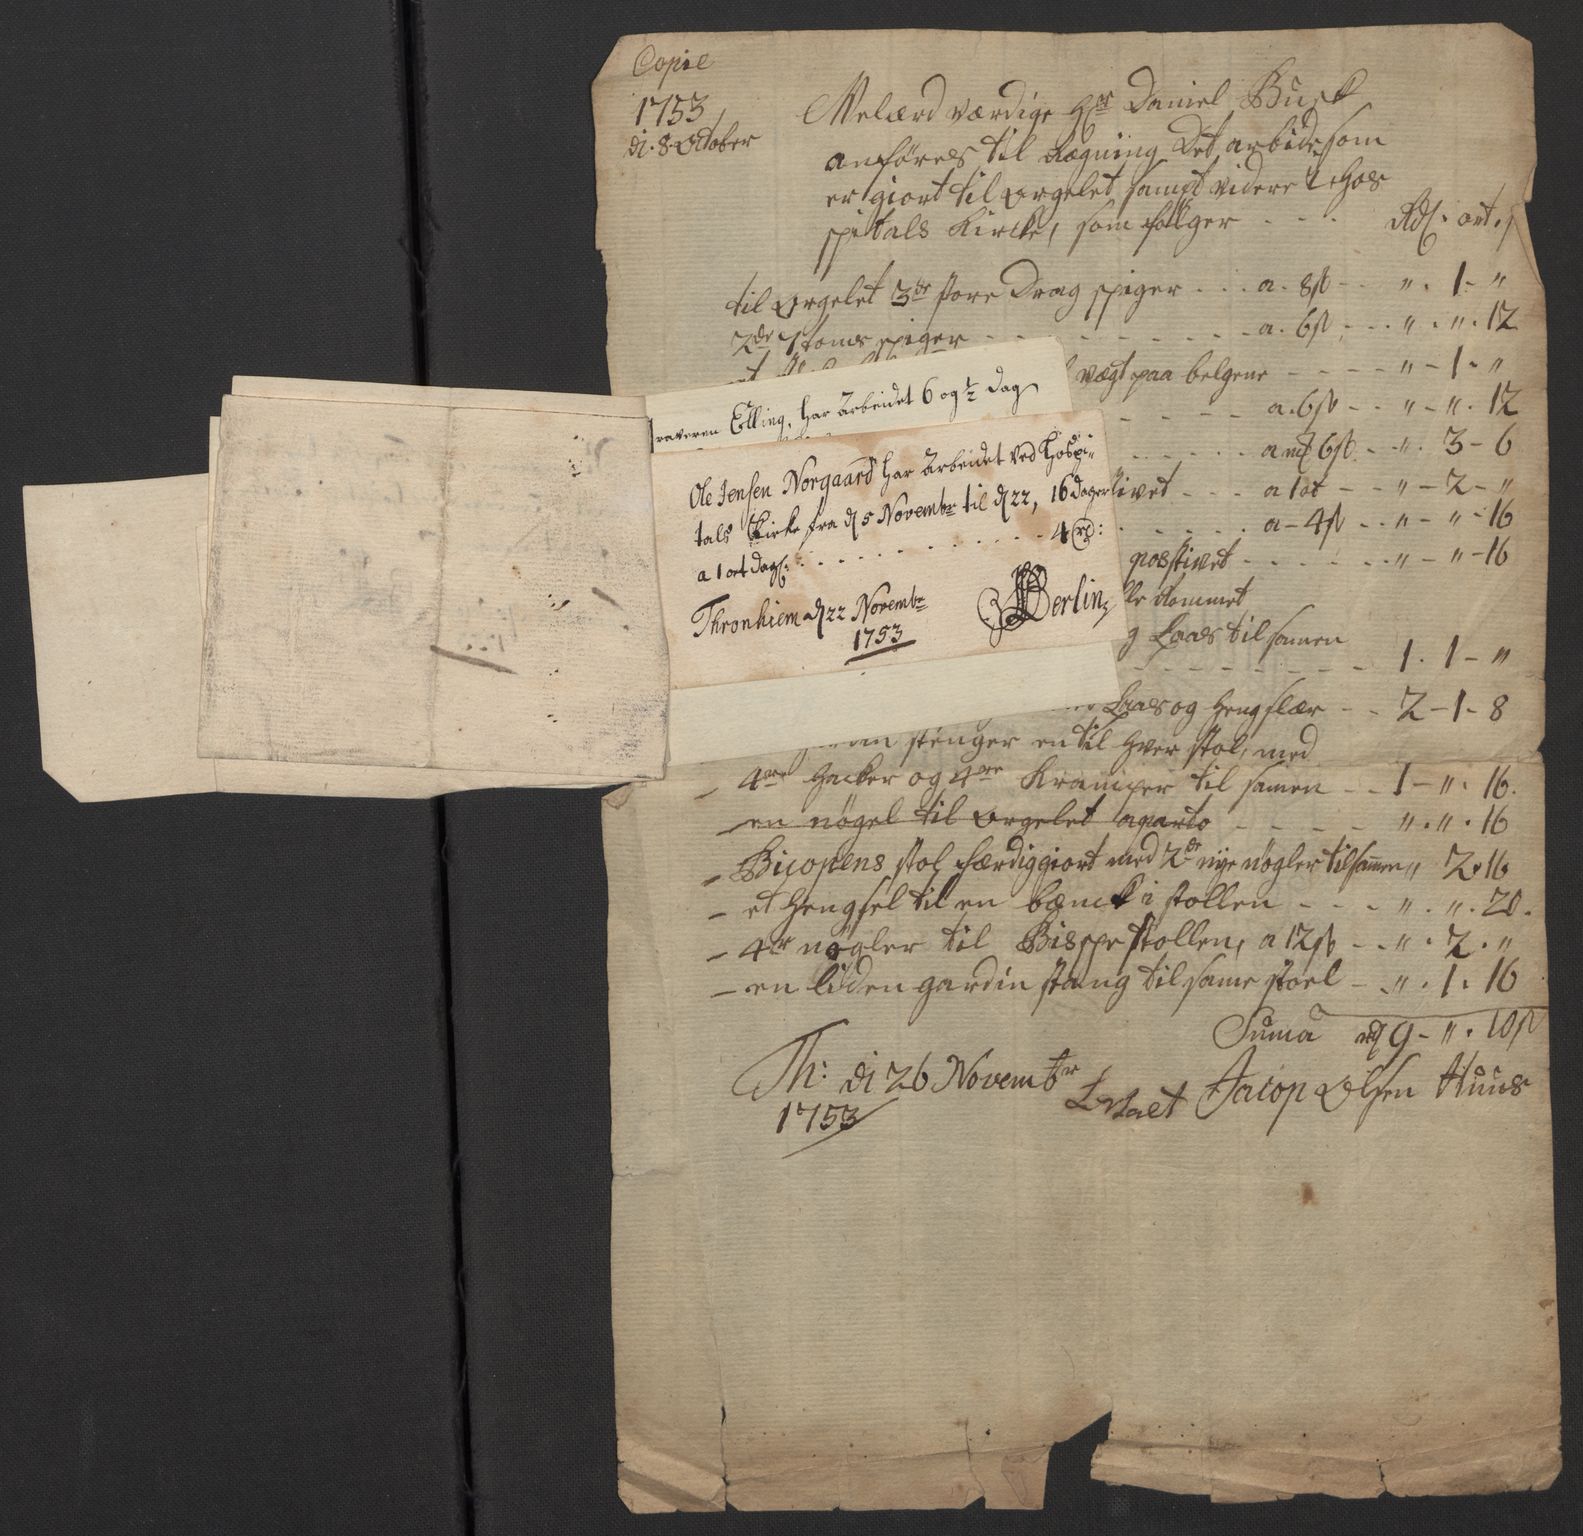 Copie
1753
di. 8 October
Velærdværdige Hr Daniel Busck
anföres til Rægning Det arbide som
er giort til orgelet samt videre i Hos
spitals Kircke, som fölger - - - Rdl. ort. s
til orgelet 3de store Drag spiger - - - a. 8s - - " . 1 - "
2de stoms spiger - - - a. 6s - - " . " . 12
vægt paa belgene - - - - " - 1 - "
a. 6s - - " - " . 12
a mk 6s - - " . 3 - 6
a 1 ort - - " - 2 - "
a - 4s - - " - " - 16
possitivet - - - - - " - " - 16
dommet
g Laas til samen
1 . 1 - "
Laas og Hengslær - - 2 - 1 - 8
stenger en til hver stol, med
- 4re Hacker og 4re Kramper til samen - - 1 - " . 16.
en nögel til orgelet aparto - - - - - " . " . 16
- Bicopens stol færdiggiort med 2de nye nögler tilsammen " 2 . 16
- et Hengsel til en bænck i stollen - - - " . " . 20.
- 4r nögler til Bispe stollen, a 12s - - " . 2 . "
- en liden gardin stang til same stoel - - " . 1 . 16
Suma rdl 9 - " . 10s
Th: di 26 Novembr
1753
Jacop Olsen Huus
raveren Elling, har Arbeidet 6 og ½ Dag
Ole Jensen Norgaard har Arbeidet ved Hospi-
tals Kirke fra d 5 Novembr til d 22, 16 dager
a 1 ort dagl: - - - - - - 4 rd:
Thronhiem d 22 Novembr
1753
Berlin